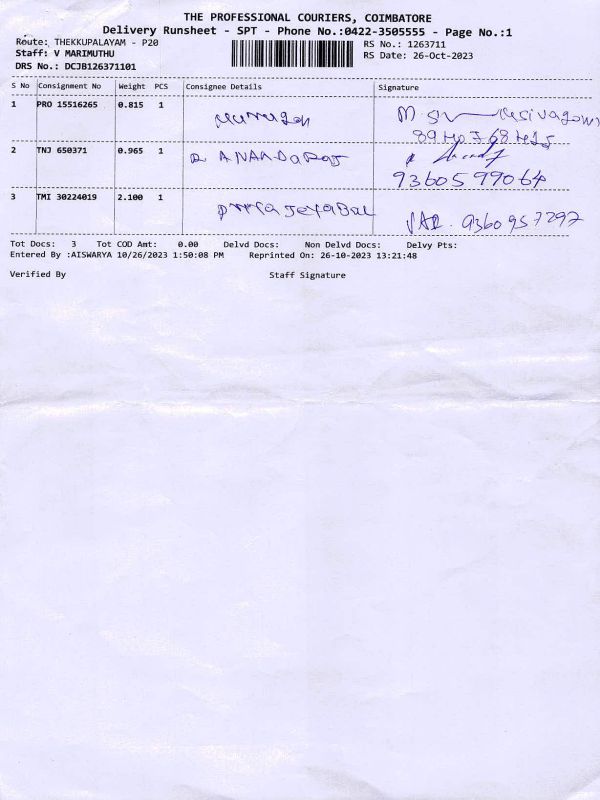 THE PROFESSIONAL COURIERS, COIMBATORE
Delivery Runsheet - SPT - Phone No.:0422-3505555 - Page No.:1
Route: THEKKUPALAYAM - P20
RS No.: 1263711
Staff: V MARIMUTHU
RS Date: 26-Oct-2023
DRS No.: DCJB126371101
S No Consignment No Weight PCS Consignee Details Signature
1 PRO 15516265 0.815 1
2 TNJ 650371 0.965 1 R ANANDARAJ
9360599064
3 TMI 30224019 2.100 1 9360957297
Tot Docs: 3 Tot COD Amt: 0.00 Delvd Docs: Non Delvd Docs: Delvy Pts:
Entered By :AISWARYA 10/26/2023 1:50:08 PM Reprinted On: 26-10-2023 13:21:48
Verified By Staff Signature